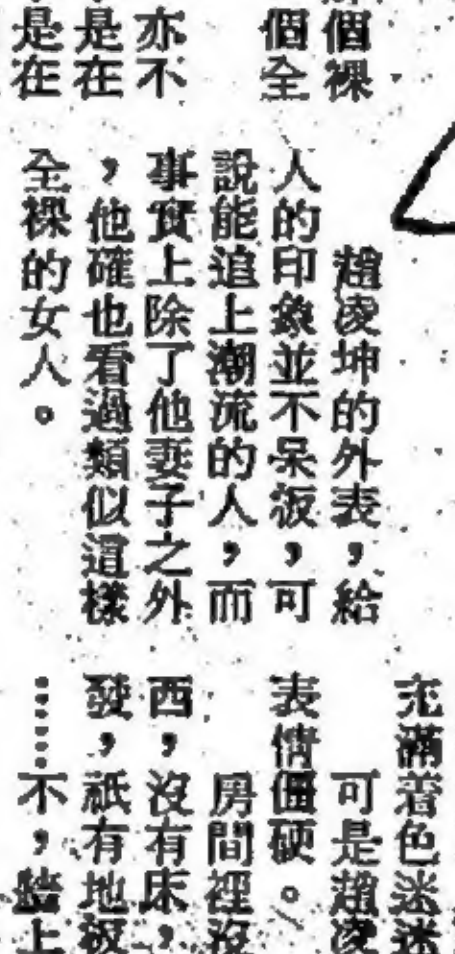 個裸
個全
亦不
是在
是在
趙凌坤的外表，給
人的印象並不呆板，可
說能追上潮流的人，而
事實上除了他妻子之外
，他確也看過類似這樣
全裸的女人。
充滿着色迷迷
可是趙凌
表情僵硬。
房間裡沒
西，沒有床，
發，祇有地板
……不，牆上